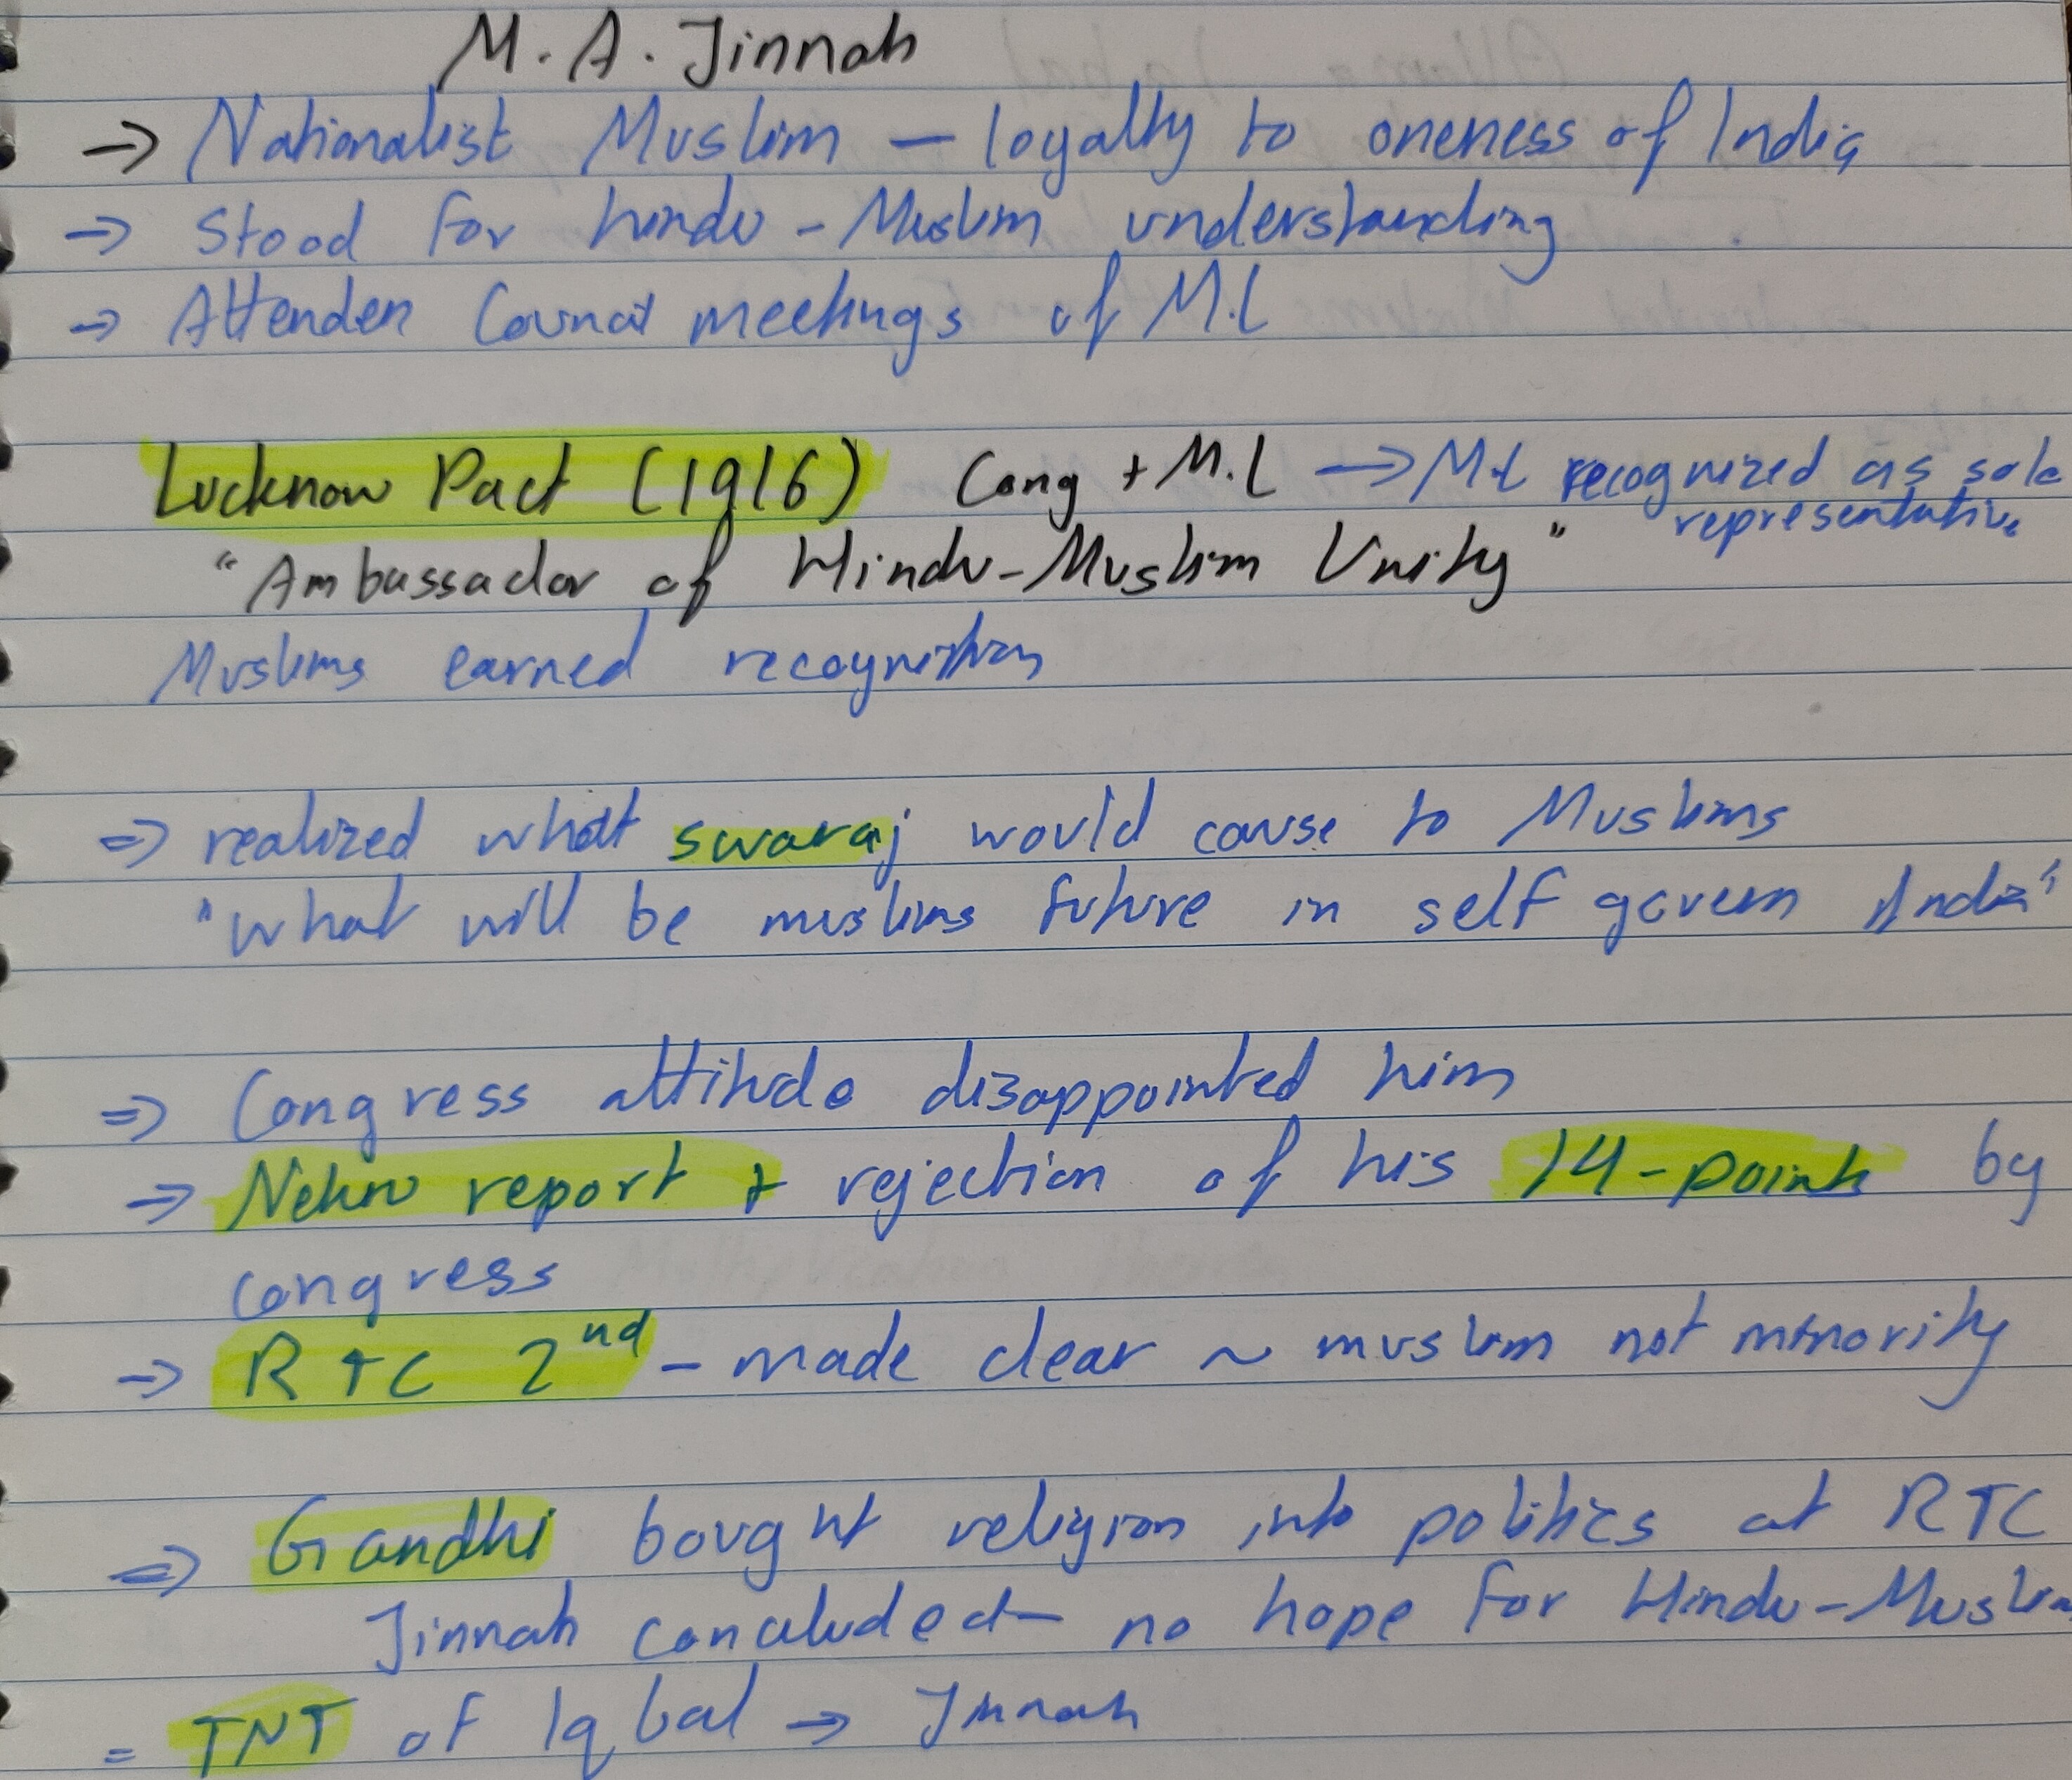 M. A. Jinnah
→ Nationalist Muslim — loyalty to oneness of India
→ Stood for hindu - Muslim understanding
→ Attenden Council meetings of M.L
Lucknow Pact (1916) Cong + M.L → M.L recognized as sole
representative
"Ambassador of Hindu-Muslim Unity"
Muslims earned recognition
⇒ realized what swaraj would cause to Muslims
"what will be muslims future in self govern India"
⇒ Congress attitude disappointed him
⇒ Nehru report + rejection of his 14-points by
congress
⇒ RTC 2nd - made clear ~ muslim not minority
⇒ Gandhi bought religion into politics at RTC
Jinnah concluded — no hope for Hindu-Muslim
= TNT of Iqbal → Jinnah